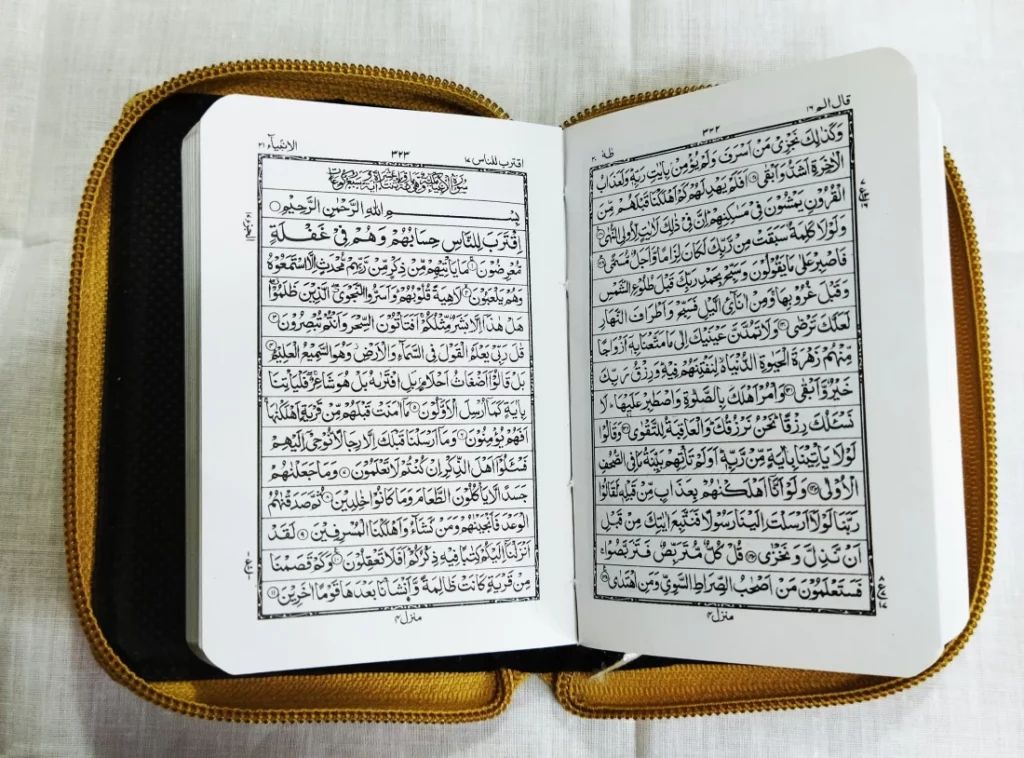 قال الم ١٦
٣٢٢
طٰهٰ ٢٠
وَكَذٰلِكَ نَجْزِىْ مَنْ اَسْرَفَ وَلَمْ يُؤْمِنْۢ بِاٰيٰتِ رَبِّهٖ وَلَعَذَابُ
الْاٰخِرَةِ اَشَدُّ وَاَبْقٰى ۝ اَفَلَمْ يَهْدِ لَهُمْ كَمْ اَهْلَكْنَا قَبْلَهُمْ مِّنَ
الْقُرُوْنِ يَمْشُوْنَ فِىْ مَسٰكِنِهِمْ اِنَّ فِىْ ذٰلِكَ لَاٰيٰتٍ لِّاُولِى النُّهٰى
وَلَوْلَا كَلِمَةٌ سَبَقَتْ مِنْ رَّبِّكَ لَكَانَ لِزَامًا وَّاَجَلٌ مُّسَمًّى
فَاصْبِرْ عَلٰى مَا يَقُوْلُوْنَ وَسَبِّحْ بِحَمْدِ رَبِّكَ قَبْلَ طُلُوْعِ الشَّمْسِ
وَقَبْلَ غُرُوْبِهَا وَمِنْ اٰنَآئِ الَّيْلِ فَسَبِّحْ وَاَطْرَافَ النَّهَارِ
لَعَلَّكَ تَرْضٰى ۝ وَلَا تَمُدَّنَّ عَيْنَيْكَ اِلٰى مَا مَتَّعْنَا بِهٖٓ اَزْوَاجًا
مِّنْهُمْ زَهْرَةَ الْحَيٰوةِ الدُّنْيَا لِنَفْتِنَهُمْ فِيْهِ وَرِزْقُ رَبِّكَ
خَيْرٌ وَّاَبْقٰى ۝ وَاْمُرْ اَهْلَكَ بِالصَّلٰوةِ وَاصْطَبِرْ عَلَيْهَا لَا
نَسْـَٔلُكَ رِزْقًا نَحْنُ نَرْزُقُكَ وَالْعَاقِبَةُ لِلتَّقْوٰى ۝ وَقَالُوْا
لَوْلَا يَاْتِيْنَا بِاٰيَةٍ مِّنْ رَّبِّهٖ اَوَلَمْ تَاْتِهِمْ بَيِّنَةُ مَا فِى الصُّحُفِ
الْاُوْلٰى ۝ وَلَوْ اَنَّآ اَهْلَكْنٰهُمْ بِعَذَابٍ مِّنْ قَبْلِهٖ لَقَالُوْا
رَبَّنَا لَوْلَآ اَرْسَلْتَ اِلَيْنَا رَسُوْلًا فَنَتَّبِعَ اٰيٰتِكَ مِنْ قَبْلِ
اَنْ نَّذِلَّ وَنَخْزٰى ۝ قُلْ كُلٌّ مُّتَرَبِّصٌ فَتَرَبَّصُوْا
فَسَتَعْلَمُوْنَ مَنْ اَصْحٰبُ الصِّرَاطِ السَّوِىِّ وَمَنِ اهْتَدٰى
منزل ٤
اقترب للناس ١٧
٣٢٣
الانبيآء ٢١
بِسْمِ اللهِ الرَّحْمٰنِ الرَّحِيْمِ
اِقْتَرَبَ لِلنَّاسِ حِسَابُهُمْ وَهُمْ فِىْ غَفْلَةٍ
مُّعْرِضُوْنَ ۝ مَا يَاْتِيْهِمْ مِّنْ ذِكْرٍ مِّنْ رَّبِّهِمْ مُّحْدَثٍ اِلَّا اسْتَمَعُوْهُ
وَهُمْ يَلْعَبُوْنَ ۝ لَاهِيَةً قُلُوْبُهُمْ وَاَسَرُّوا النَّجْوَى الَّذِيْنَ ظَلَمُوْا
هَلْ هٰذَآ اِلَّا بَشَرٌ مِّثْلُكُمْ اَفَتَاْتُوْنَ السِّحْرَ وَاَنْتُمْ تُبْصِرُوْنَ ۝
قٰلَ رَبِّىْ يَعْلَمُ الْقَوْلَ فِى السَّمَآءِ وَالْاَرْضِ وَهُوَ السَّمِيْعُ الْعَلِيْمُ
بَلْ قَالُوْٓا اَضْغَاثُ اَحْلَامٍ بَلِ افْتَرٰىهُ بَلْ هُوَ شَاعِرٌ فَلْيَاْتِنَا
بِاٰيَةٍ كَمَآ اُرْسِلَ الْاَوَّلُوْنَ ۝ مَآ اٰمَنَتْ قَبْلَهُمْ مِّنْ قَرْيَةٍ اَهْلَكْنٰهَا
اَفَهُمْ يُؤْمِنُوْنَ ۝ وَمَآ اَرْسَلْنَا قَبْلَكَ اِلَّا رِجَالًا نُّوْحِىْٓ اِلَيْهِمْ
فَسْـَٔلُوْٓا اَهْلَ الذِّكْرِ اِنْ كُنْتُمْ لَا تَعْلَمُوْنَ ۝ وَمَا جَعَلْنٰهُمْ
جَسَدًا لَّا يَاْكُلُوْنَ الطَّعَامَ وَمَا كَانُوْا خٰلِدِيْنَ ۝ ثُمَّ صَدَقْنٰهُمُ
الْوَعْدَ فَاَنْجَيْنٰهُمْ وَمَنْ نَّشَآءُ وَاَهْلَكْنَا الْمُسْرِفِيْنَ ۝ لَقَدْ
اَنْزَلْنَآ اِلَيْكُمْ كِتٰبًا فِيْهِ ذِكْرُكُمْ اَفَلَا تَعْقِلُوْنَ ۝ وَكَمْ قَصَمْنَا
مِنْ قَرْيَةٍ كَانَتْ ظَالِمَةً وَّاَنْشَاْنَا بَعْدَهَا قَوْمًا اٰخَرِيْنَ ۝
منزل ٤